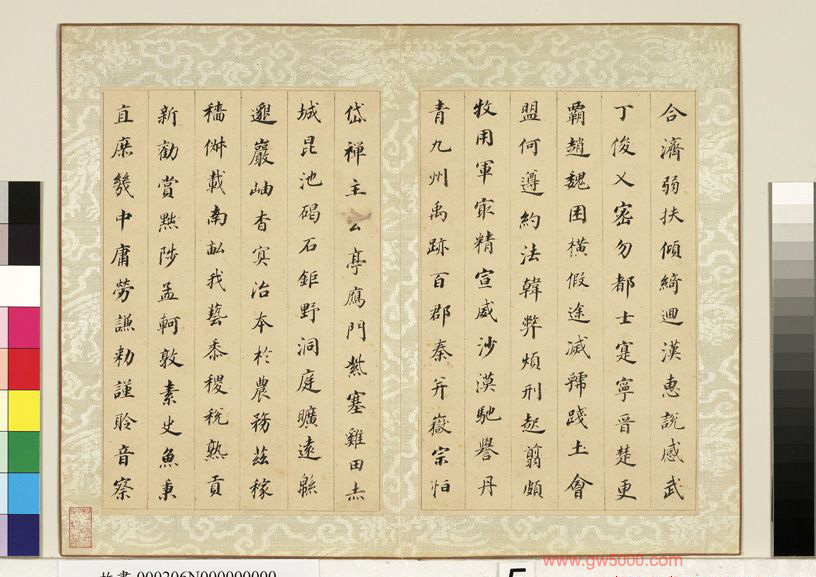 合濟弱扶傾綺迴漢惠說感武
丁俊乂密勿都士寔寧晉楚更
霸趙魏困橫假途滅虢踐土會
盟何遵約法韓弊煩刑起翦頗
牧用軍最精宣威沙漠馳譽丹
青九州禹跡百郡秦并嶽宗恒
岱禪主云亭鴈門紫塞雞田赤
城昆池碣石鉅野洞庭曠遠緜
邈巖岫杳冥治本於農務茲稼
穡俶載南畝我藝黍稷稅熟貢
新勸賞黜陟孟軻敦素史魚秉
直庶幾中庸勞謙勅謹聆音察
000206N000000000
www.gw5000.com